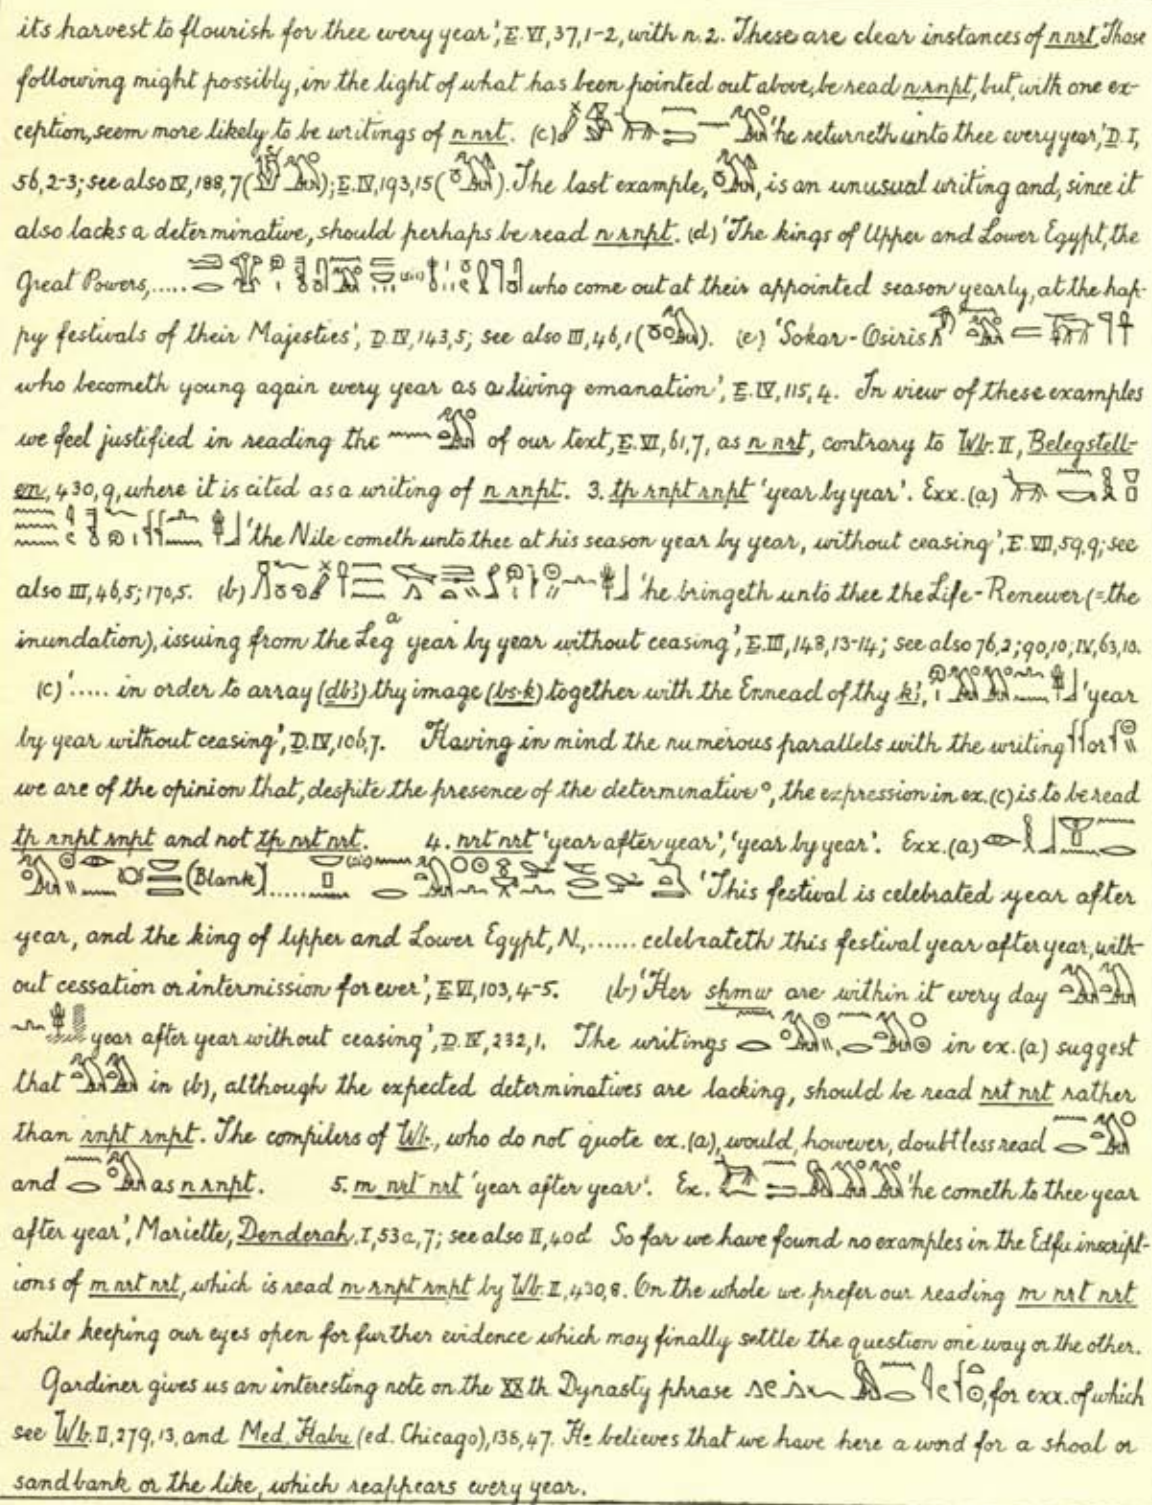 its harvest to flourish for thee every year', E. VI, 37, 1-2, with n. 2. These are clear instances of nnrt. Those
following might possibly, in the light of what has been pointed out above, be read n rnpt, but, with one ex-
ception, seem more likely to be writings of n nrt. (c) 'he returneth unto thee every year,' D. I,
56, 2-3; see also IV, 188, 7 ( ); E. IV, 193, 15 ( ). The last example, , is an unusual writing and, since it
also lacks a determinative, should perhaps be read n rnpt. (d) 'The kings of Upper and Lower Egypt, the
Great Powers, ..... who come out at their appointed season yearly, at the hap-
py festivals of their Majesties', D. IV, 143, 5; see also III, 46, 1 ( ). (e) 'Sokar-Osiris
who becometh young again every year as a living emanation', E. IV, 115, 4. In view of these examples
we feel justified in reading the of our text, E. VI, 61, 7, as n nrt, contrary to Wb. II, Belegstell-
en, 430, 9, where it is cited as a writing of n rnpt. 3. tp rnpt rnpt 'year by year'. Exx. (a)
'the Nile cometh unto thee at his season year by year, without ceasing', E. VII, 59, 9; see
also III, 46, 5; 170, 5. (b) 'he bringeth unto thee the Life-Renewer (= the
inundation), issuing from the Leg a year by year without ceasing', E. III, 148, 13-14; see also 76, 2; 90, 10; IV, 63, 10.
(c) '..... in order to array (db3) thy image (bs-k) together with the Ennead of thy k3, 'year
by year without ceasing', D. IV, 106, 7. Having in mind the numerous parallels with the writing or
we are of the opinion that, despite the presence of the determinative °, the expression in ex. (c) is to be read
tp rnpt rnpt and not tp nrt nrt. 4. nrt nrt 'year after year', 'year by year'. Exx. (a)
(Blank) ...... (sic) 'This festival is celebrated year after
year, and the king of Upper and Lower Egypt, N., ...... celebrateth this festival year after year, with-
out cessation or intermission for ever', E. VI, 103, 4-5. (b) 'Her shmw are within it every day
year after year without ceasing', D. IV, 232, 1. The writings , in ex. (a) suggest
that in (b), although the expected determinatives are lacking, should be read nrt nrt rather
than rnpt rnpt. The compilers of Wb., who do not quote ex. (a), would, however, doubtless read
and as n rnpt. 5. m nrt nrt 'year after year'. Ex. 'he cometh to thee year
after year', Mariette, Denderah, I, 53a, 7; see also II, 40d So far we have found no examples in the Edfu inscript-
ions of m nrt nrt, which is read m rnpt rnpt by Wb. II, 430, 8. On the whole we prefer our reading m nrt nrt
while keeping our eyes open for further evidence which may finally settle the question one way or the other.
Gardiner gives us an interesting note on the XXth Dynasty phrase , for exx. of which
see Wb. II, 279, 13, and Med. Habu (ed. Chicago), 138, 47. He believes that we have here a word for a shoal or
sandbank or the like, which reappears every year.